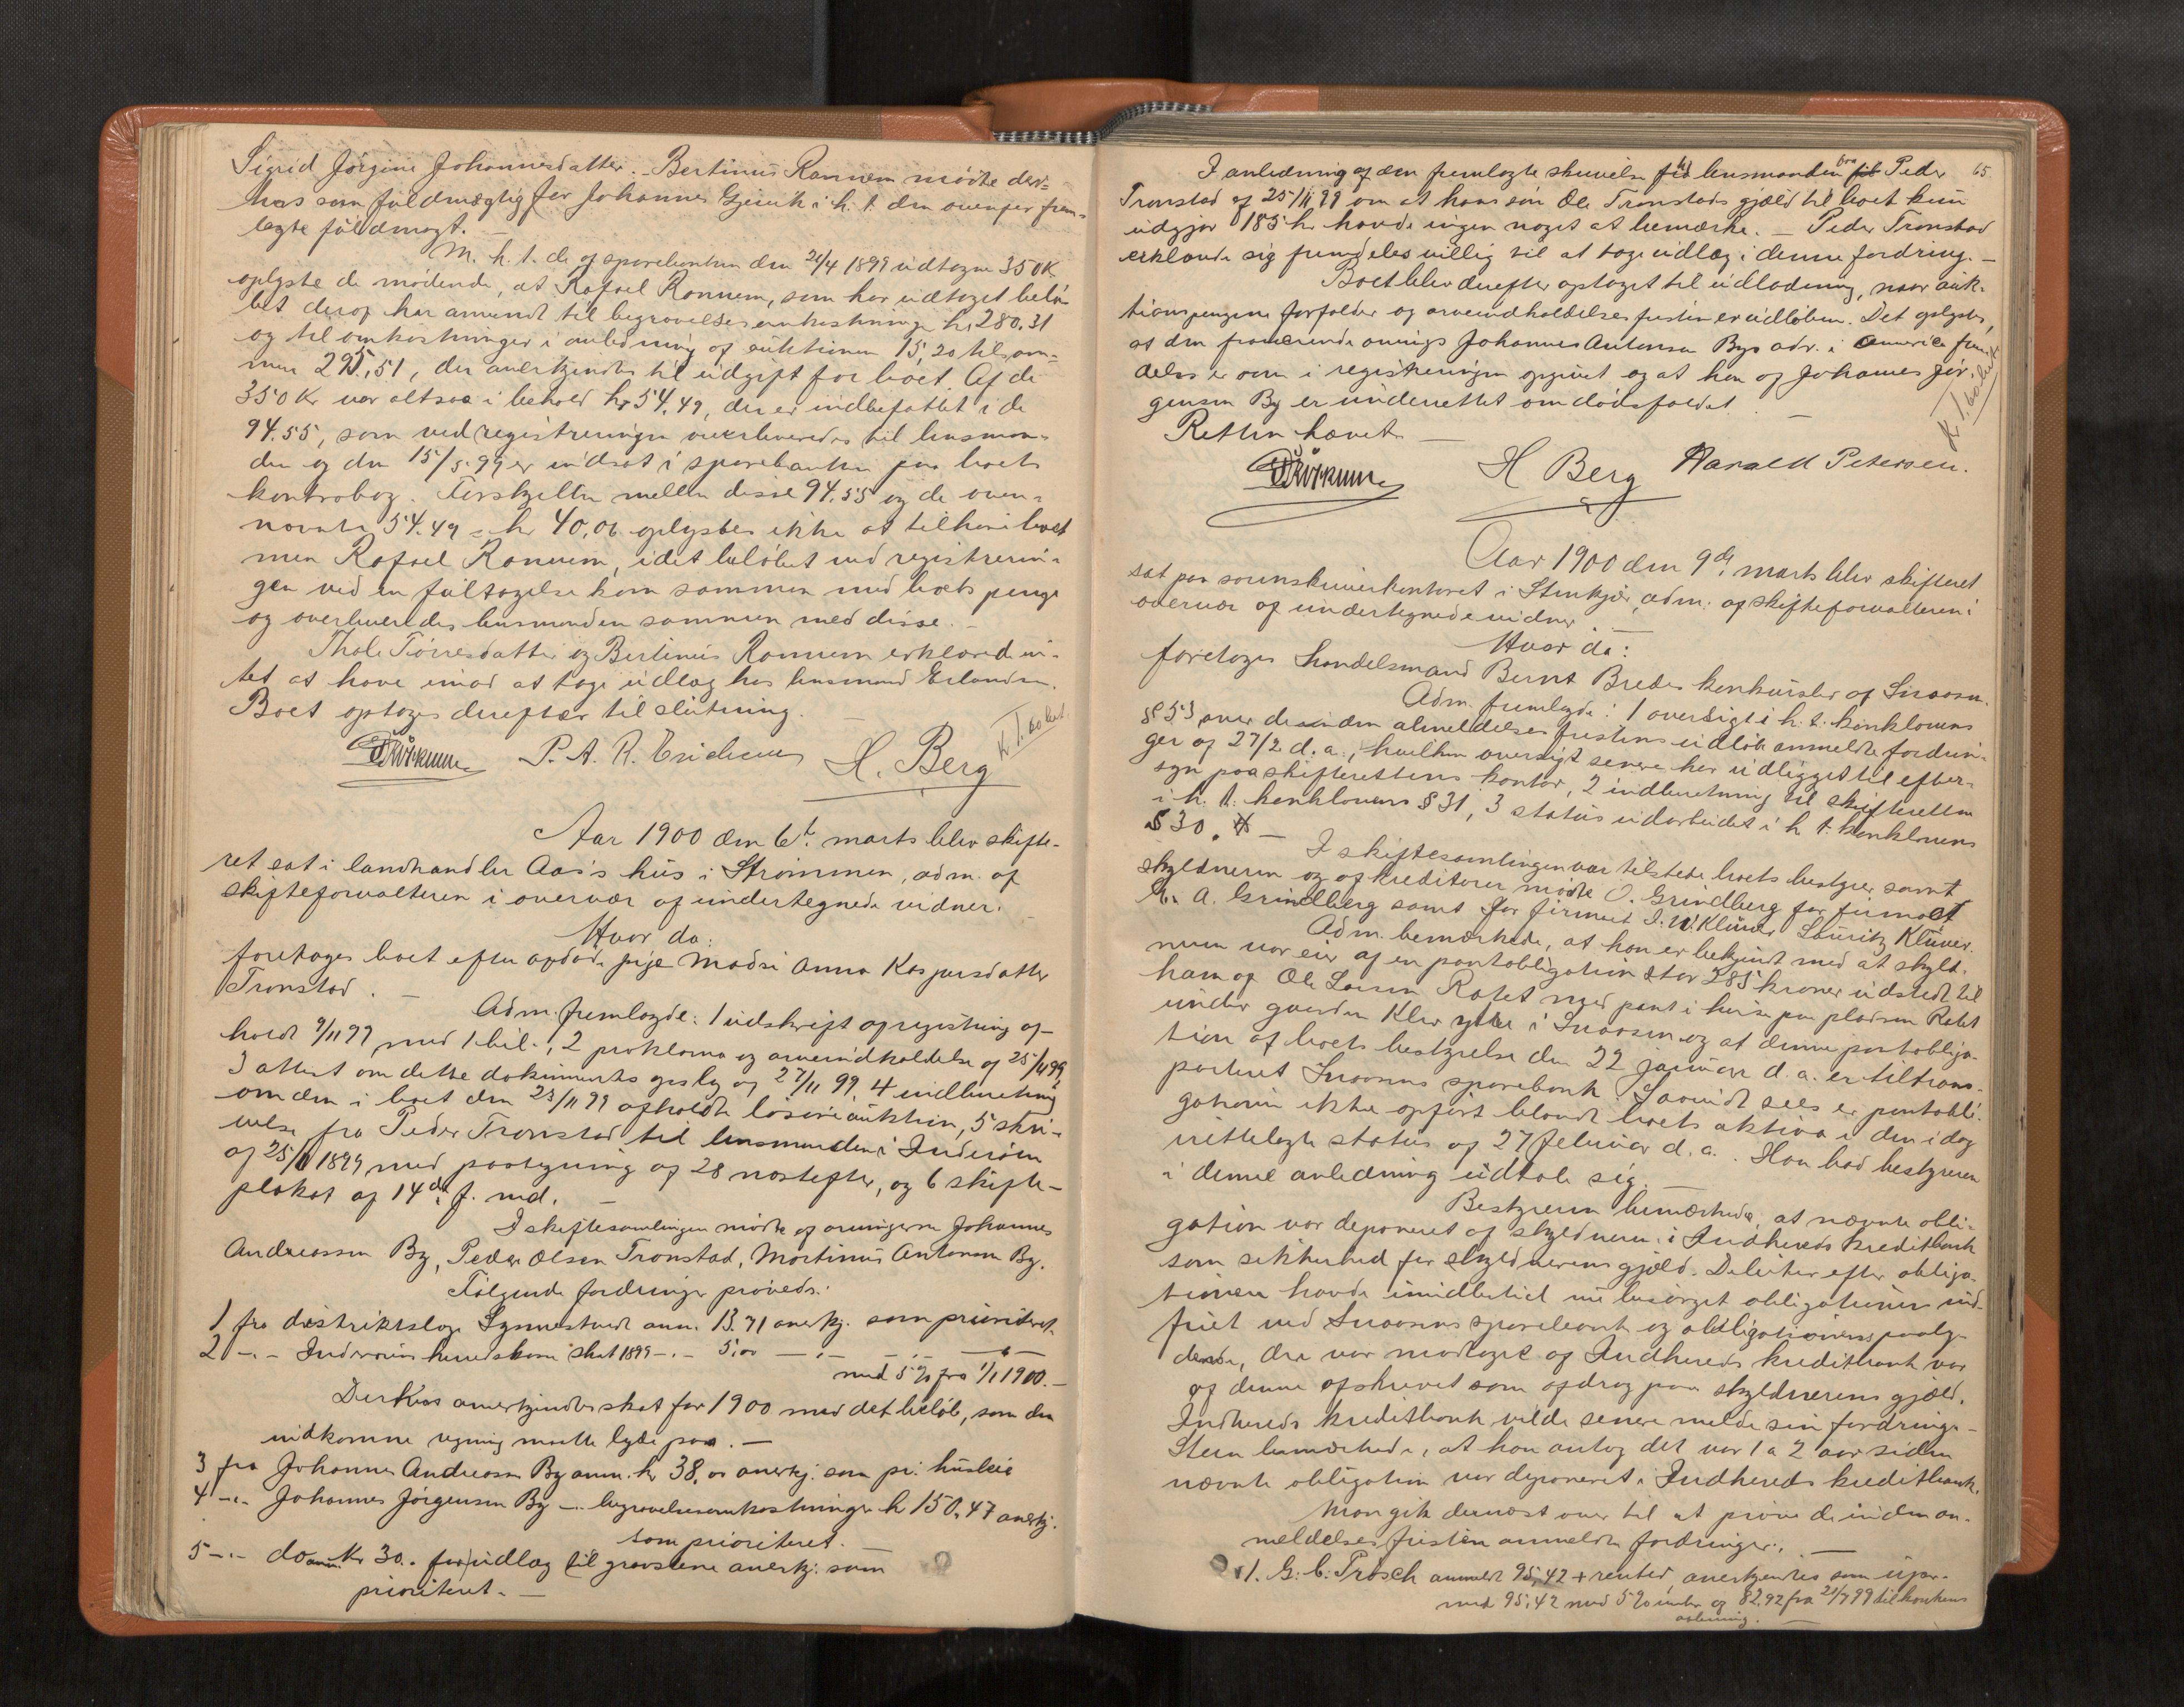 Sigrid Jørgine Johannesdatter. – Bertinus Rannem mødte der-
hos som fuldmægtig for Johannes Gjervik i h. t. den ovenfor frem-
lagte fuldmagt. –
M. h. t. de af sparebanken den 21/4 1899 udtagne 350 K
oplyste de mødende, at Rafael Rannem, som har udtaget belø-
bet derop har anvendt til begravelsesomkostninger kr 280.31
og til omkostninger i anledning af auktionen 15,20 tilsam-
men 295,51, der anerkjendtes til udgift for boet. Af de
350 Kr var altsaa i behold kr 54.49, der er indbefattet i de
94.55, som ved registreringen overleveredes til lensman-
den og den 15/5.99 er indsat i sparebanken paa boets
kontrabog. Forskjellen mellem disse 94.55 og de oven-
nævnte 54.49 = kr 40,06 oplystes ikke at tilhøre boet
men Rafael Rannem, idet beløbet ved registrerin-
gen ved en feiltagelse kom sammen med boets penge
og overleveredes lensmanden sammen med disse. –
Thale Tørresdatter og Bertinus Rannem erklærede in-
tet at have imod at tage udlæg hos lensmand Erlandsen.
Boet optoges derefter til slutning. –
P. A. R. Erichsen H. Berg
Aar 1900 den 6te marts blev skifte-
ret sat i landhandler Aas's hus i Strømmen, adm. af
skifteforvalteren i overvær af undertegnede vidner. –
Hvor da:
foretoges boet efter afdøde pige Madsi Anna Kaspersdatter
Tronstad. –
Adm. fremlagde: 1 udskrift af registrering af-
holdt 9/11 99 med 1 bil., 2 proklama og arveindkaldelse af 25/11 99,
3 attest om dette dokuments opslag af 27/11 99, 4 indberetning
om den i boet den 23/11 99 afholdte løsøreauktion, 5 skri-
velse fra Peder Tronstad til lensmanden i Inderøen
af 25/11 1899 med paategning af 28 næstefter, og 6 skifte-
plakat af 14de f. md. –
I skiftesamlingen mødte af arvingerne Johannes
Andreassen By, Peder Olsen Tronstad, Martinus Antonsen By.
Følgende fordringer prøvedes:
1 fra distriktslæge Synnestvedt anm. 13.71 anerkj. som prioriteret
2 –"– Inderøens herredskasse skat 1899 –"– 5,00 –"– –"–
med 5 % fra 1/1 1900. –
Derhos anerkjendtes skat for 1900 med det beløb, som den
indkomne regning maatte lyde paa. –
3 fra Johannes Andreassen By anm. kr 38,00 anerkj. som pr. husleie
4 –"– Johannes Jørgensen By –"– begravelsesomkostninger kr 150,47 anerkj.
som prioriteret. –
5 –"– do anm. Kr 30.- for udlæg til gravstene anerkj. som
prioriteret. –
65.
I anledning af den fremlagte skrivelse til lensmanden fra Peder
Tronstad af 25/11 99 om at hans søn Ole Tronstads gjæld til boet kun
udgjør 185 kr havde ingen noget at bemærke. – Peder Tronstad
erklærede sig fremdeles villig til at tage udlæg i denne fordring. –
Boet blev derefter optaget til udlodning, naar auk-
tionspengene forfalder og arveindkaldelsesfristen er udløben. Det oplystes,
at den fraværende arvings Johannes Antonsen Bys adr. i Amerika frem-
deles er som i registreringen opgivet og at han og Johannes Jør-
gensen By er underrettet om dødsfaldet. –
Retten hævet. –
H Berg Harald Petersen.
Aar 1900 den 9de marts blev skifteret
sat paa sorenskriverkontoret i Stenkjær, adm. af skifteforvalteren i
overvær af undertegnede vidner. –
Hvor da:
foretoges handelsmand Bernt Bredes konkursbo af Snaasen.
Adm. fremlagde: 1 oversigt i h. t. konklovens
§ 53 over de inden anmeldelsesfristens udløb anmeldte fordrin-
ger af 27/2 d. a., hvilken oversigt senere har udligget til efter-
syn paa skifterettens kontor, 2 indberetning til skifteretten
i h. t. konklovens § 31, 3 status udarbeidet i h. t. konklovens
§ 30. –
I skiftesamlingen var tilstede boets bestyrer samt
skyldneren og af kreditorer mødte O. Grindberg for firmaet
A. Grindberg samt for firmaet I. N. Klüwer Lauritz Klüwer.
Adm. bemærkede, at han er bekjendt med at skyld-
neren var eier af en pantobligation stor 285 kroner udstedt til
ham af Ole Larsen Rotet med pant i huse paa pladsen Rotet
under gaarden Klev ytre i Snaasen og at denne pantobliga-
tion af boets bestyrelse den 22 januar d. a. er tiltrans-
porteret Snaasens sparebank. Saavidt sees er pantobli-
gationen ikke opført blandt boets aktiva i den idag
rettelagte status af 27 februar d. a. Han bad bestyreren
i denne anledning udtale sig. –
Bestyreren bemærkede, at nævnte obli-
gation var deponeret af skyldneren i Indherreds kreditbank
som sikkerhed for skyldnerens gjæld. Debitor efter obliga-
tionen havde imidlertid nu besørget obligationen ind-
friet ved Snaasens sparebank og obligationens paaly-
dende, der var modtaget af Indherreds kreditbank var
af denne afskrevet som afdrag paa skyldnerens gjæld.
Indherreds kreditbank vilde senere melde sin fordring. –
Steen bemærkede, at han antog det var 1 a 2 aar siden
nævnte obligation var deponeret i Indherreds kreditbank.
Man gik dernæst over til at prøve de inden an-
meldelsesfristen anmeldte fordringer. –
1. G. C. Trosch anmeldt 95,42 + renter, anerkjendtes som upr.
med 95,42 med 5 % renter af 82.92 fra 21/7 99 til konkursens
aabning. –